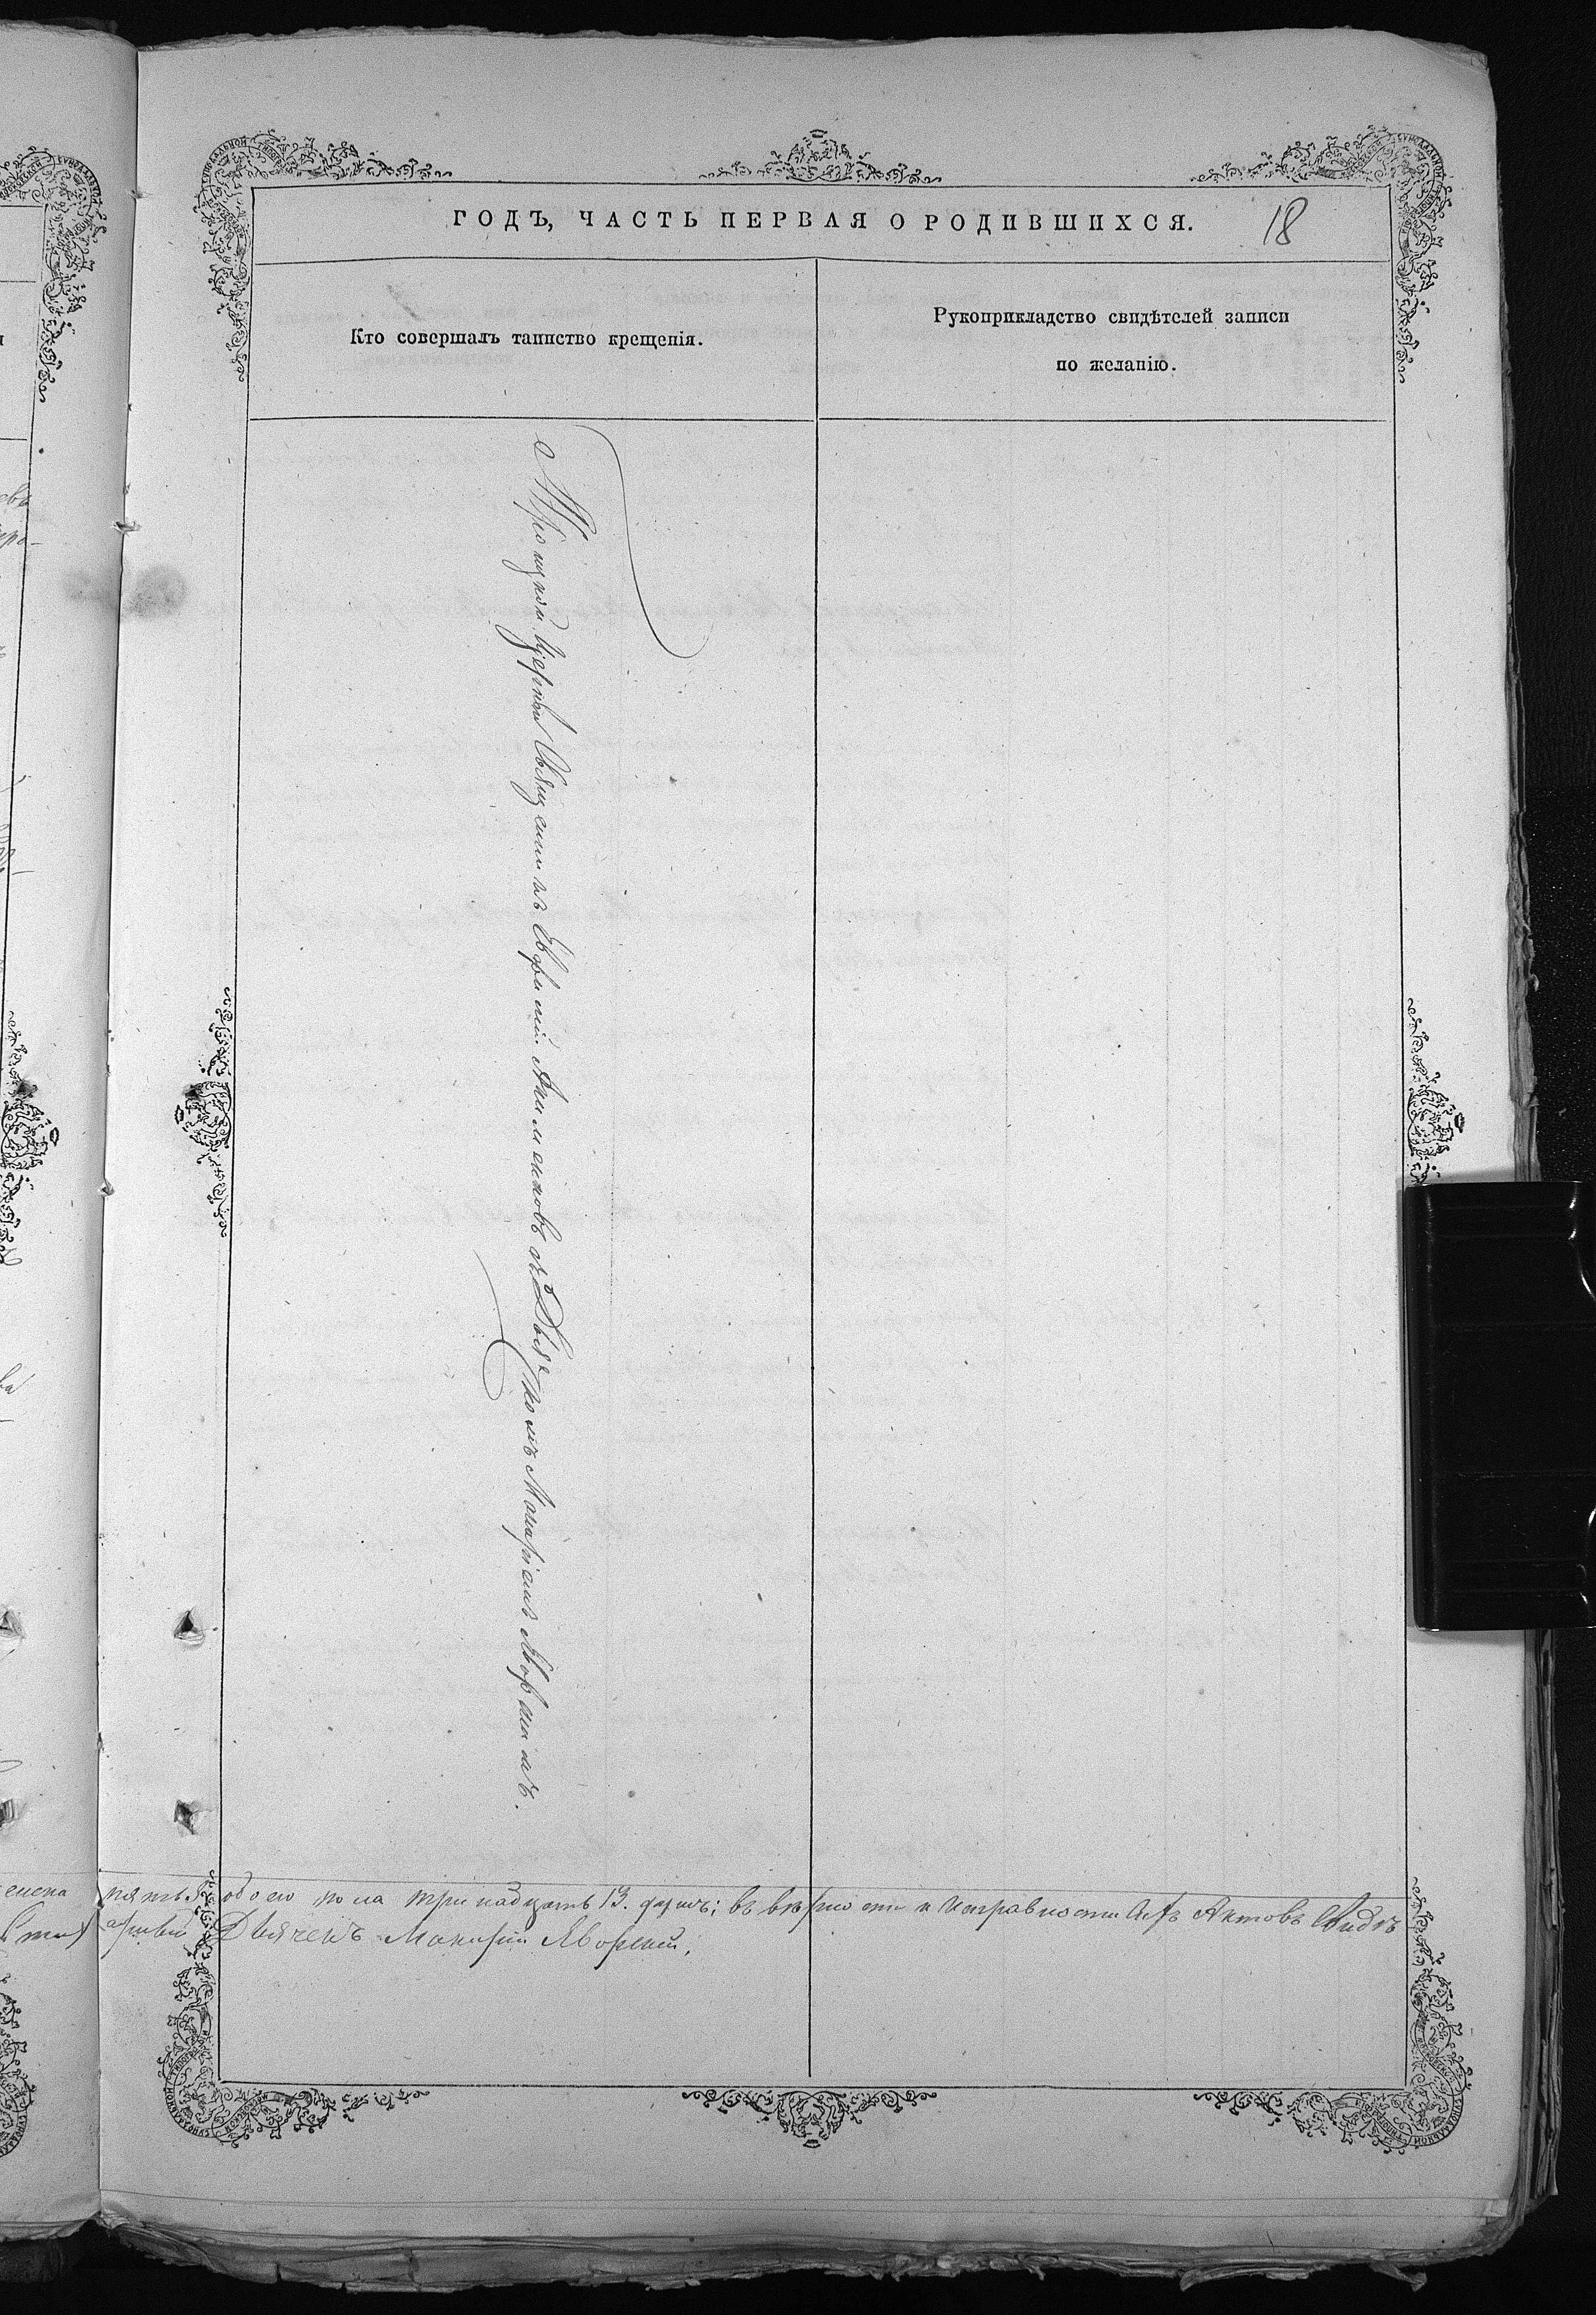 ГОДЪ, ЧАСТЬ ПЕРВАЯ О РОДИВШИХСЯ. 18
Кто совершалъ таинство крещенія.
Рукоприкладство свидѣтелей записи
по желанію.
Троицкой Церкви Священникъ Евфимій Акименковъ съ Дьячкомъ Макаріемъ Яворскимъ.
пять 5 обоего пола тринадцать 13. душъ; въ вѣрности и исправности Актовъ
Дьячекъ Макарій Яворскій,